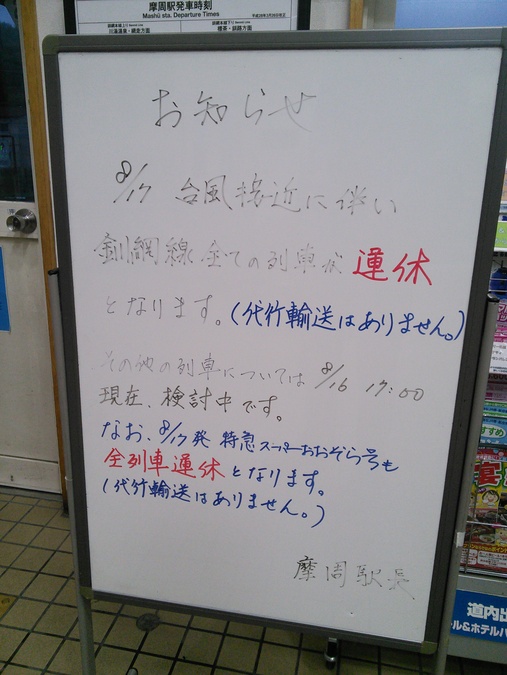 摩周駅発車時刻
Mashū sta. Departure Times
川湯温泉・網走方面
標茶・釧路方面
お知らせ
8/17 台風接近に伴い
釧網線 全ての列車が 運休
となります。(代行輸送はありません。)
その他の列車については 8/16 17:00
現在、検討中です。
なお、8/17発 特急スーパーおおぞら号も
全列車運休となります。
(代行輸送はありません。)
摩周駅長
道内出
ール&ホテルパ